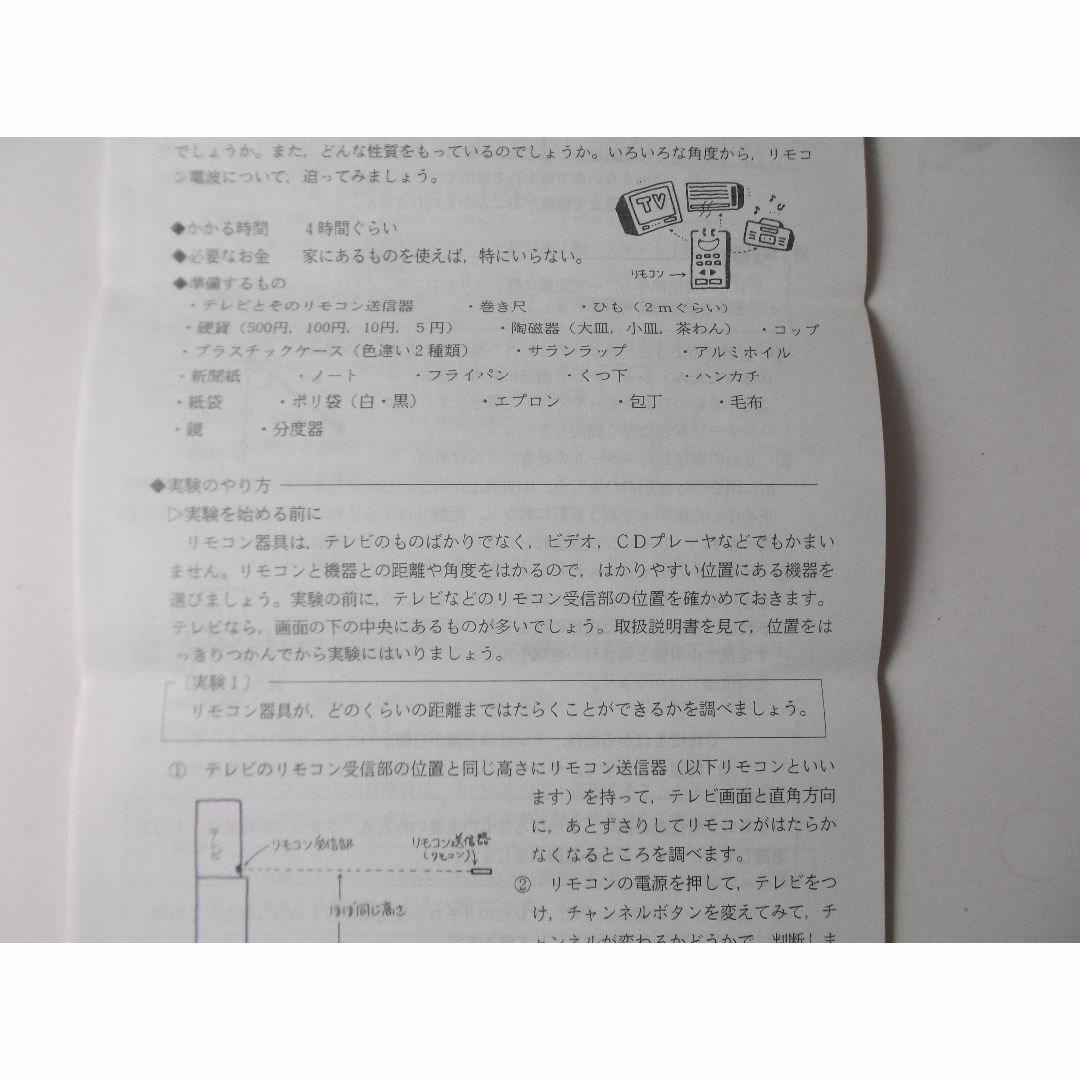 でしょうか。また，どんな性質をもっているのでしょうか。いろいろな角度から，リモコ
ン電波について，迫ってみましょう。
TV
リモコン→
◆かかる時間　　４時間ぐらい
◆必要なお金　　家にあるものを使えば，特にいらない。
◆準備するもの
・テレビとそのリモコン送信器　　・巻き尺　　・ひも（２ｍぐらい）
・硬貨（500円，100円，10円，５円）　　・陶磁器（大皿，小皿，茶わん）　・コップ
・プラスチックケース（色違い２種類）　　・サランラップ　　・アルミホイル
・新聞紙　　・ノート　　・フライパン　　・くつ下　　・ハンカチ
・紙袋　　・ポリ袋（白・黒）　　・エプロン　　・包丁　　・毛布
・鏡　　・分度器
◆実験のやり方
▷実験を始める前に
リモコン器具は，テレビのものばかりでなく，ビデオ，ＣＤプレーヤなどでもかまい
ません。リモコンと機器との距離や角度をはかるので，はかりやすい位置にある機器を
選びましょう。実験の前に，テレビなどのリモコン受信部の位置を確かめておきます。
テレビなら，画面の下の中央にあるものが多いでしょう。取扱説明書を見て，位置をは
っきりつかんでから実験にはいりましょう。
〔実験１〕
リモコン器具が，どのくらいの距離まではたらくことができるかを調べましょう。
①　テレビのリモコン受信部の位置と同じ高さにリモコン送信器（以下リモコンといい
ます）を持って，テレビ画面と直角方向
に，あとずさりしてリモコンがはたらか
なくなるところを調べます。
②　リモコンの電源を押して，テレビをつ
け，チャンネルボタンを変えてみて，チ
ャンネルが変わるかどうかで，判断しま
テレビ
リモコン受信部
リモコン送信器
（リモコン）
ほぼ同じ高さ